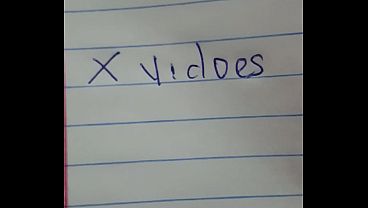 X vidoes